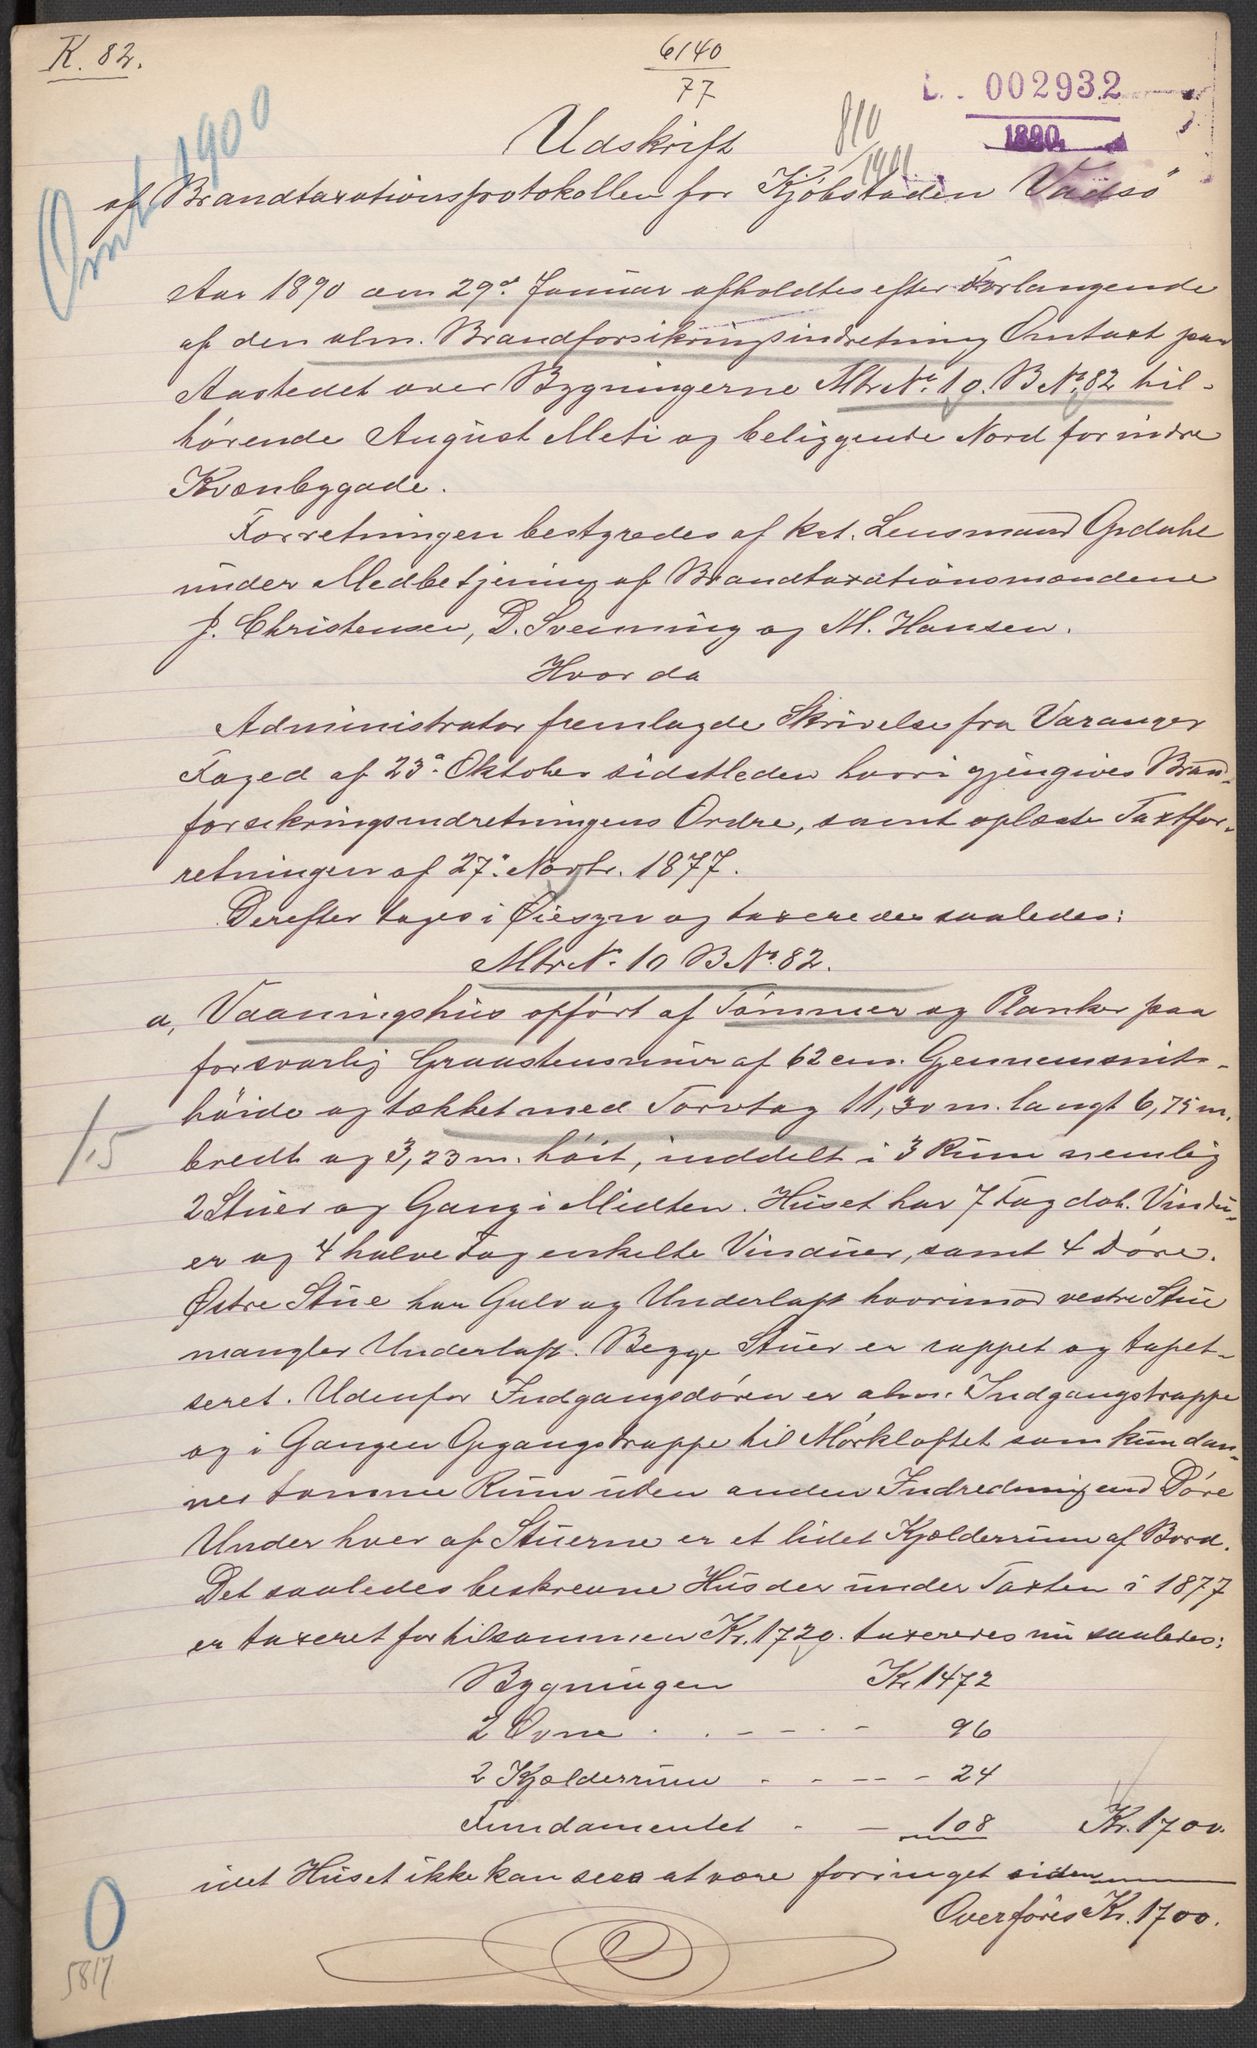 K. 82.
6140
77
L. 002932
1890
810
1901
Omt. 1900
Udskrift
af Brandtaxationsprotokollen for Kjöbstaden Vadsö
Aar 1890 den 29de Januar afholdtes efter Forlangende
af den alm. Brandforsikringsindretning Omtaxt paa
Aastedet over Bygningerne Mtr. No. 10. B No. 82 til-
hörende August Meti og beliggende Nord for indre
Kvænbygade.
Forretningen bestyredes af kst. Lensmand Opdahl
under Medbetjening af Brandtaxationsmændene
J. Christensen, D. Svenning og M. Hansen.
Hvorda
Administrator fremlagde Skrivelse fra Varanger
Foged af 23de Oktober sidstleden hvori gjengives Brand-
forsikringsindretningens Ordre, samt oplæste Taxtfor-
retningen af 27de Novbr. 1877.
Derefter toges i Øiesyn og taxeredes saaledes:
Mtr No. 10 B No. 82.
a, Vaaningshus opfört af Tömmer og Planker paa
forsvarlig Graastensmur af 62 cm. Gennemsnits-
höide og tækket med Torvtag 11,30 m. langt 6,75 m.
bredt og 3,23 m. höit, inddelt i 3 Rum nemlig
15
2 Stuer og Gang i Midten. Huset har 7 Fag dob. Vindu-
er og 4 halve Fag enkelte Vinduer, samt 4 Döre.
Østre Stue har Gulv og Underloft hvorimod vestre Stue
mangler Underloft. Begge Stuer er rappet og tapet-
seret. Udenfor Indgangsdören er alm. Indgangstrappe
og i Gangen Opgangstrappe til Mörkloftet som kun dan-
ner tomme Rum uden anden Indredning end Döre
Under hver af Stuerne er et lidet Kjælderrum af Bord.
Det saaledes beskrevne Hus der under Taxten i 1877
er taxeret for tilsammen Kr. 1720. taxeredes nu saaledes:
Bygningen Kr 1472
2 Ovne . . - - . - 96
2 Kjælderrum . - - - - 24
Fundamentet . - 108 Kr. 1700.
idet Huset ikke kan sees at være forringet siden
Overföres Kr. 1700.
0
5817